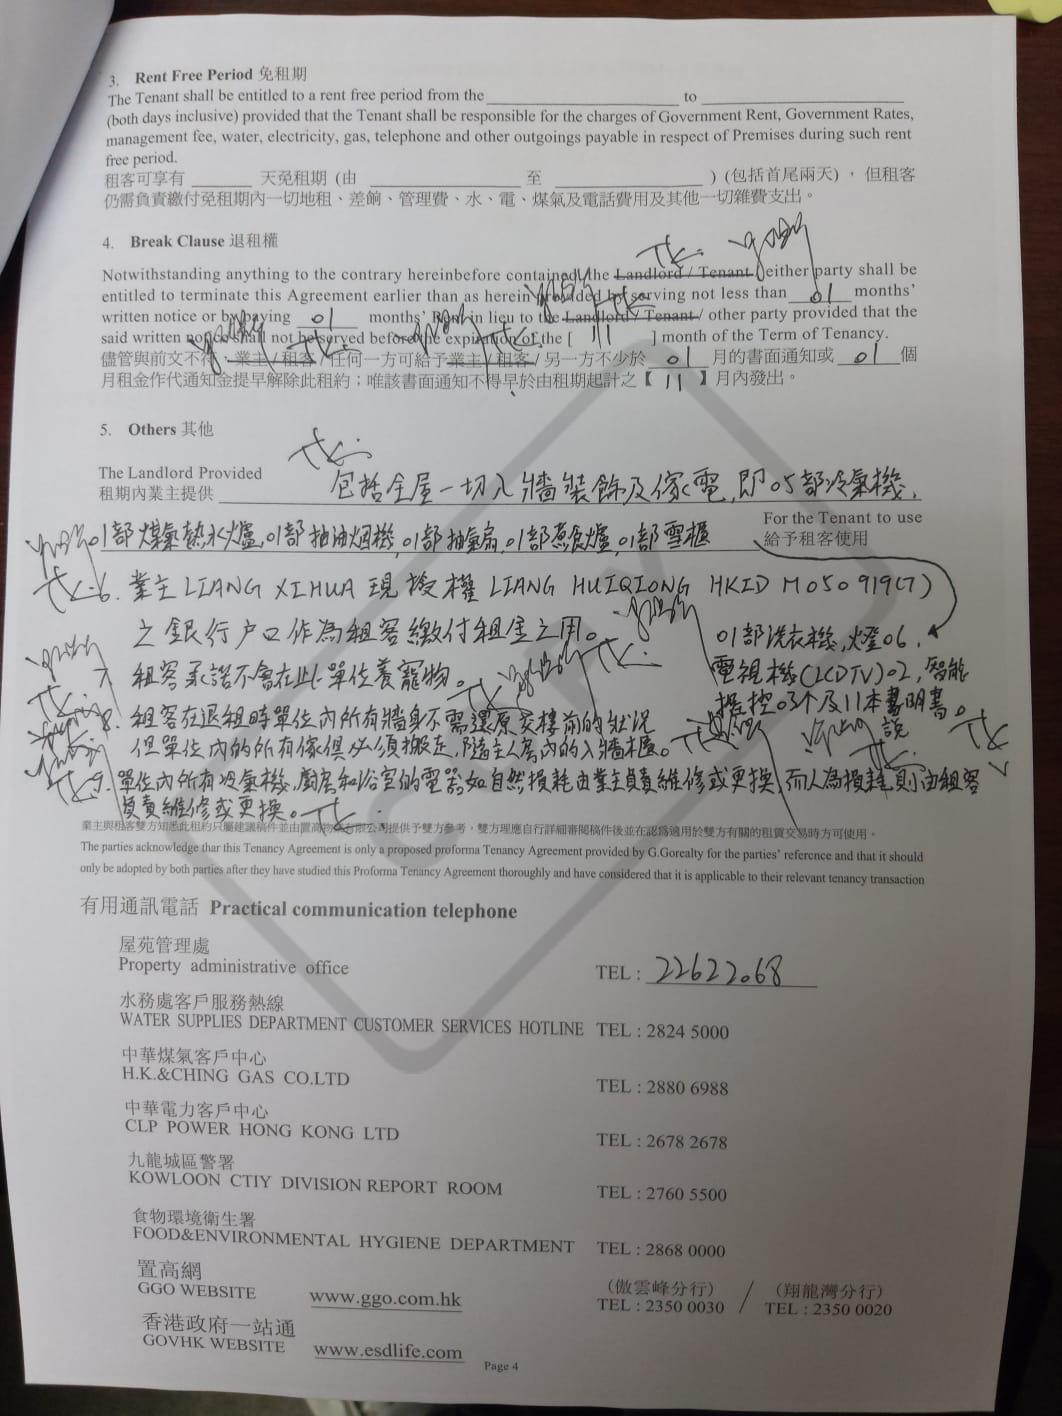 3. Rent Free Period 免租期
The Tenant shall be entitled to a rent free period from the ____________ to ____________
(both days inclusive) provided that the Tenant shall be responsible for the charges of Government Rent, Government Rates,
management fee, water, electricity, gas, telephone and other outgoings payable in respect of Premises during such rent
free period.
租客可享有 ______ 天免租期 (由 ____________ 至 ____________ ) (包括首尾兩天)，但租客
仍需負責繳付免租期內一切地租、差餉、管理費、水、電、煤氣及電話費用及其他一切雜費支出。
4. Break Clause 退租權
Notwithstanding anything to the contrary hereinbefore contained, the Landlord / Tenant / either party shall be
entitled to terminate this Agreement earlier than as herein provided by serving not less than 01 months'
written notice or by paying 01 months' Rent in lieu to the Landlord / Tenant / other party provided that the
said written notice shall not be served before the expiration of the [ 11 ] month of the Term of Tenancy.
儘管與前文不符，業主 / 租客 / 任何一方可給予業主 / 租客 / 另一方不少於 01 月的書面通知或 01 個
月租金作代通知金提早解除此租約；唯該書面通知不得早於由租期起計之【 11 】月內發出。
5. Others 其他
The Landlord Provided
租期內業主提供 包括全屋一切入牆裝飾及傢電，即05部冷氣機，
01部煤氣熱水爐，01部抽油烟機，01部抽氣扇，01部煮食爐，01部雪櫃
For the Tenant to use
給予租客使用
01部洗衣機，燈06，
電視機(LCDTV)02，智能
搖控03个及11本書明書。
說
6. 業主 LIANG XIHUA 現授權 LIANG HUIQIONG HKID M050919(7)
之銀行户口作為租客繳付租金之用。
7 租客承諾不會在此單位養寵物。
8. 租客在退租時單位內所有牆身不需還原交樓前的狀况
但單位內的所有傢俱必須搬走，隨主人房內的入牆櫃。
9. 單位內所有冷氣機，廚房和浴室的電器如自然損耗由業主負責維修或更換，而人為損耗則由租客
負責維修或更換。
業主與租客雙方知悉此租約只屬建議稿件並由置高物業有限公司提供予雙方參考，雙方理應自行詳細審閱稿件後並在認為適用於雙方有關的租賃交易時方可使用。
The parties acknowledge thar this Tenancy Agreement is only a proposed proforma Tenancy Agreement provided by G.Gorealty for the parties' reference and that it should
only be adopted by both parties after they have studied this Proforma Tenancy Agreement thoroughly and have considered that it is applicable to their relevant tenancy transaction
有用通訊電話 Practical communication telephone
屋苑管理處
Property administrative office TEL : 22622068
水務處客戶服務熱線
WATER SUPPLIES DEPARTMENT CUSTOMER SERVICES HOTLINE TEL : 2824 5000
中華煤氣客戶中心
H.K.&CHING GAS CO.LTD TEL : 2880 6988
中華電力客戶中心
CLP POWER HONG KONG LTD TEL : 2678 2678
九龍城區警署
KOWLOON CTIY DIVISION REPORT ROOM TEL : 2760 5500
食物環境衛生署
FOOD&ENVIRONMENTAL HYGIENE DEPARTMENT TEL : 2868 0000
置高網 (傲雲峰分行) / (翔龍灣分行)
GGO WEBSITE www.ggo.com.hk TEL : 2350 0030 TEL : 2350 0020
香港政府一站通
GOVHK WEBSITE www.esdlife.com
Page 4